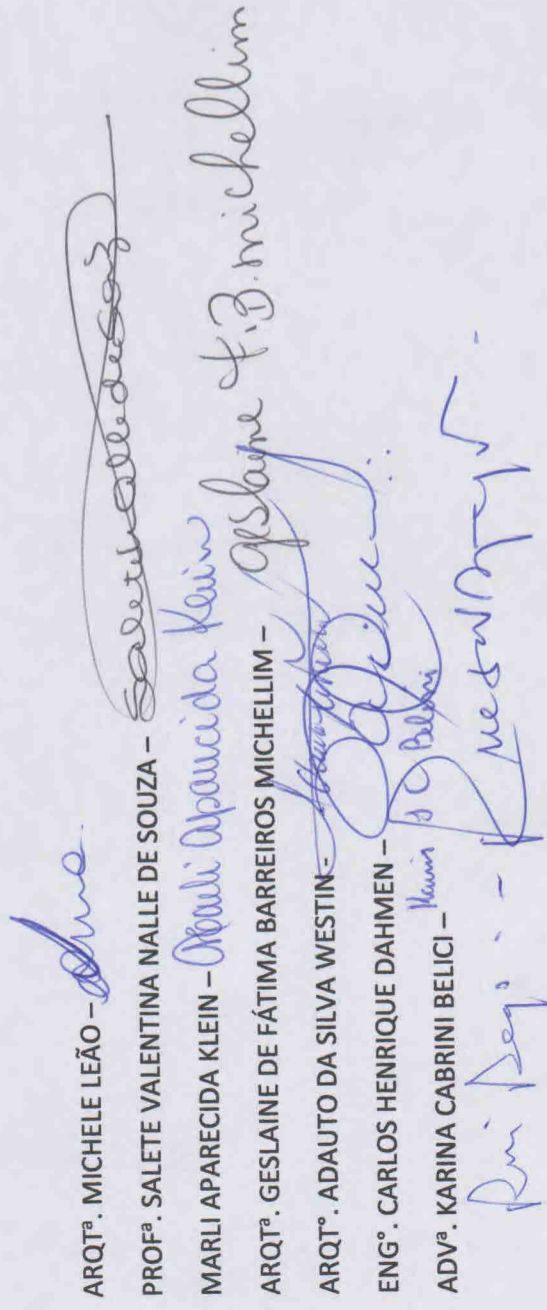 ARQTª. MICHELE LEÃO –
PROFª. SALETE VALENTINA NALLE DE SOUZA – Salete Nalle de Souza
MARLI APARECIDA KLEIN – Marli Aparecida Klein
ARQTª. GESLAINE DE FÁTIMA BARREIROS MICHELLIM – Geslayne F.B. Michellim
ARQTº. ADAUTO DA SILVA WESTIN -
ENGº. CARLOS HENRIQUE DAHMEN –
ADVª. KARINA CABRINI BELICI –